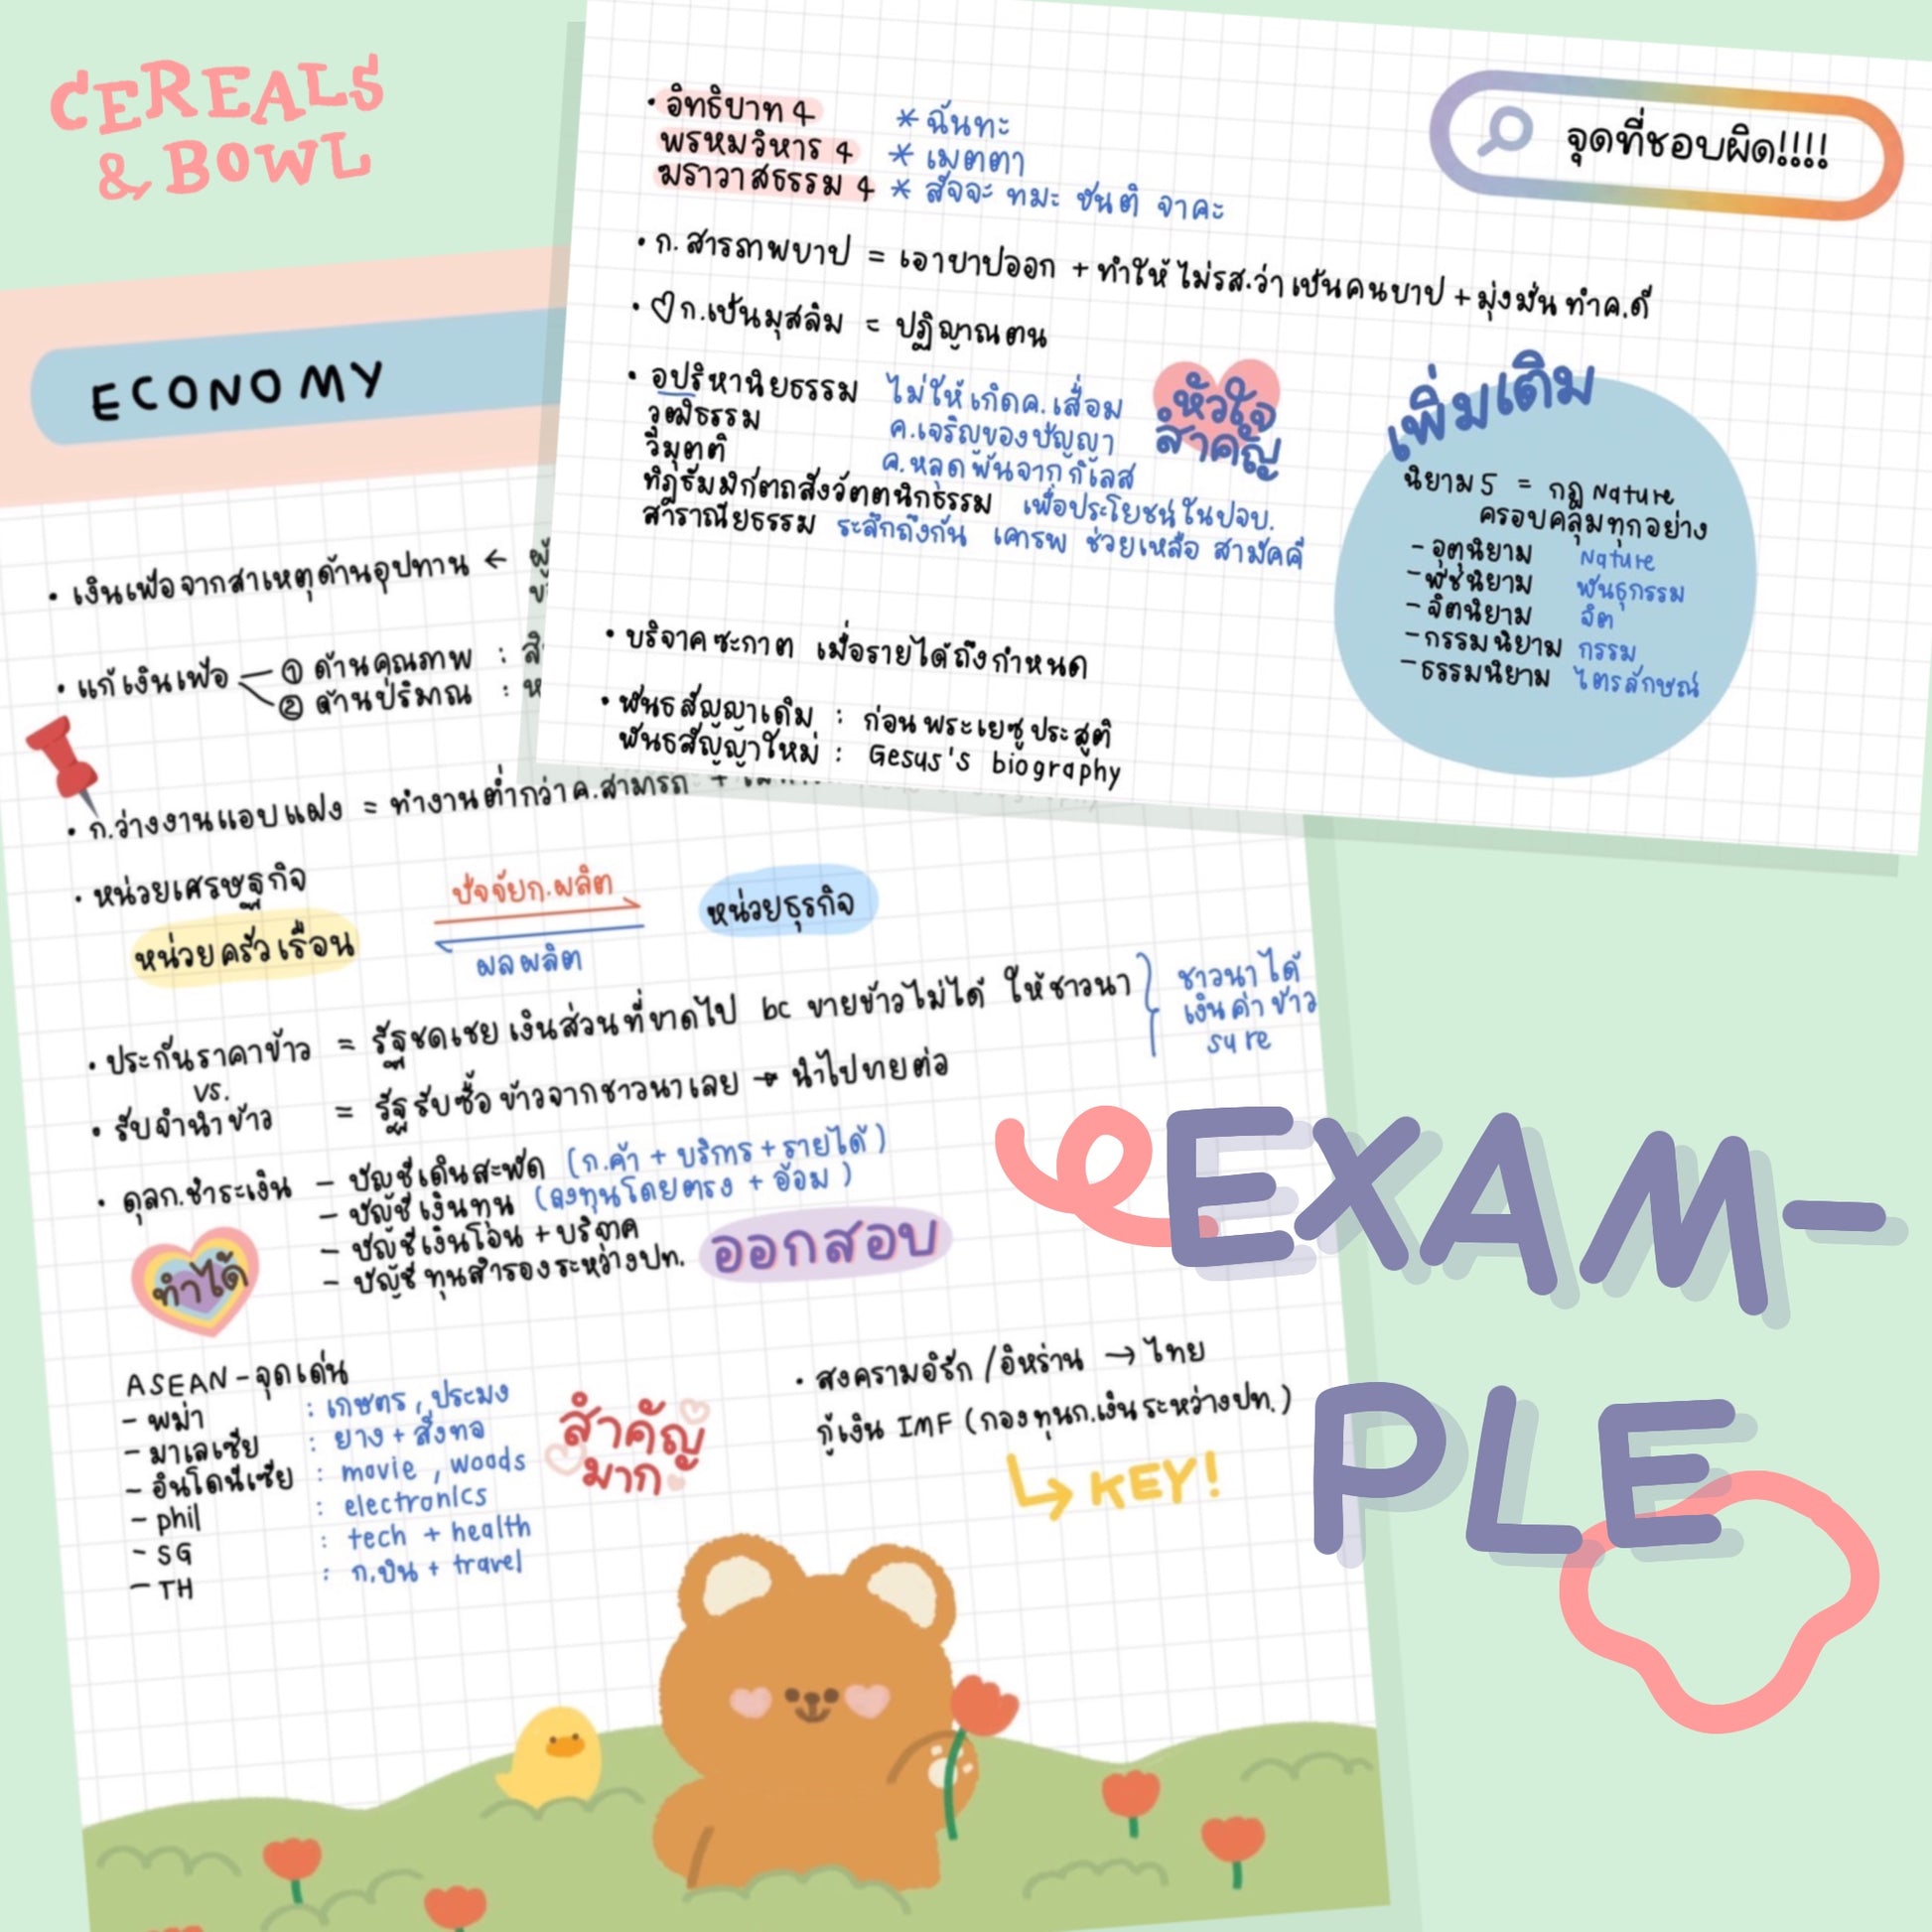 CEREALS
& BOWL
• อิทธิบาท 4 * ฉันทะ
พรหมวิหาร 4 * เมตตา
ฆราวาสธรรม 4 * สัจจะ ทมะ ขันติ จาคะ
จุดที่ชอบผิด!!!!
• ก. สารภาพบาป = เอาบาปออก + ทำให้ไม่รส.ว่าเป็นคนบาป + มุ่งมั่นทำค.ดี
• ก.เป็นมุสลิม = ปฏิญาณตน
• อปริหานิยธรรม ไม่ให้เกิดค.เสื่อม
วุฒิธรรม ค.เจริญของปัญญา
วิมุตติ ค.หลุดพ้นจากกิเลส
ทิฏธัมมิกัตถสังวัตตนิกธรรม เพื่อประโยชน์ในปจบ.
สาราณียธรรม ระลึกถึงกัน เคารพ ช่วยเหลือ สามัคคี
หัวใจ
สำคัญ
เพิ่มเติม
นิยาม 5 = กฎ Nature
ครอบคลุมทุกอย่าง
- อุตุนิยาม Nature
- พีชนิยาม พันธุกรรม
- จิตนิยาม จิต
- กรรมนิยาม กรรม
- ธรรมนิยาม ไตรลักษณ์
• บริจาคซะกาต เมื่อรายได้ถึงกำหนด
• พันธสัญญาเดิม : ก่อนพระเยซูประสูติ
พันธสัญญาใหม่ : Gesus's biography
ECONOMY
• เงินเฟ้อจากสาเหตุด้านอุปทาน ←
• แก้เงินเฟ้อ ① ด้านคุณภาพ :
② ด้านปริมาณ :
• ก.ว่างงานแอบแฝง = ทำงานต่ำกว่าค.สามารถ +
• หน่วยเศรษฐกิจ
หน่วยครัวเรือน ปัจจัยก.ผลิต หน่วยธุรกิจ
ผลผลิต
• ประกันราคาข้าว = รัฐชดเชยเงินส่วนที่ขาดไป bc ขายข้าวไม่ได้ ให้ชาวนา
vs.
• รับจำนำข้าว = รัฐรับซื้อข้าวจากชาวนาเลย → นำไปขายต่อ
ชาวนาได้
เงินค่าข้าว
sure
• ดุลก.ชำระเงิน - บัญชีเดินสะพัด (ก.ค้า + บริการ + รายได้)
- บัญชีเงินทุน (ลงทุนโดยตรง + อ้อม)
- บัญชีเงินโอน + บริจาค
- บัญชีทุนสำรองระหว่างปท.
ออกสอบ
ทำได้
ASEAN - จุดเด่น
- พม่า : เกษตร, ประมง
- มาเลเซีย : ยาง + สิ่งทอ
- อินโดนีเซีย : movie, woods
- phil : electronics
- SG : tech + health
- TH : ก.บิน + travel
สำคัญ
มาก
• สงครามอิรัก / อิหร่าน → ไทย
กู้เงิน IMF (กองทุนก.เงินระหว่างปท.)
KEY!
EXAM-
PLE